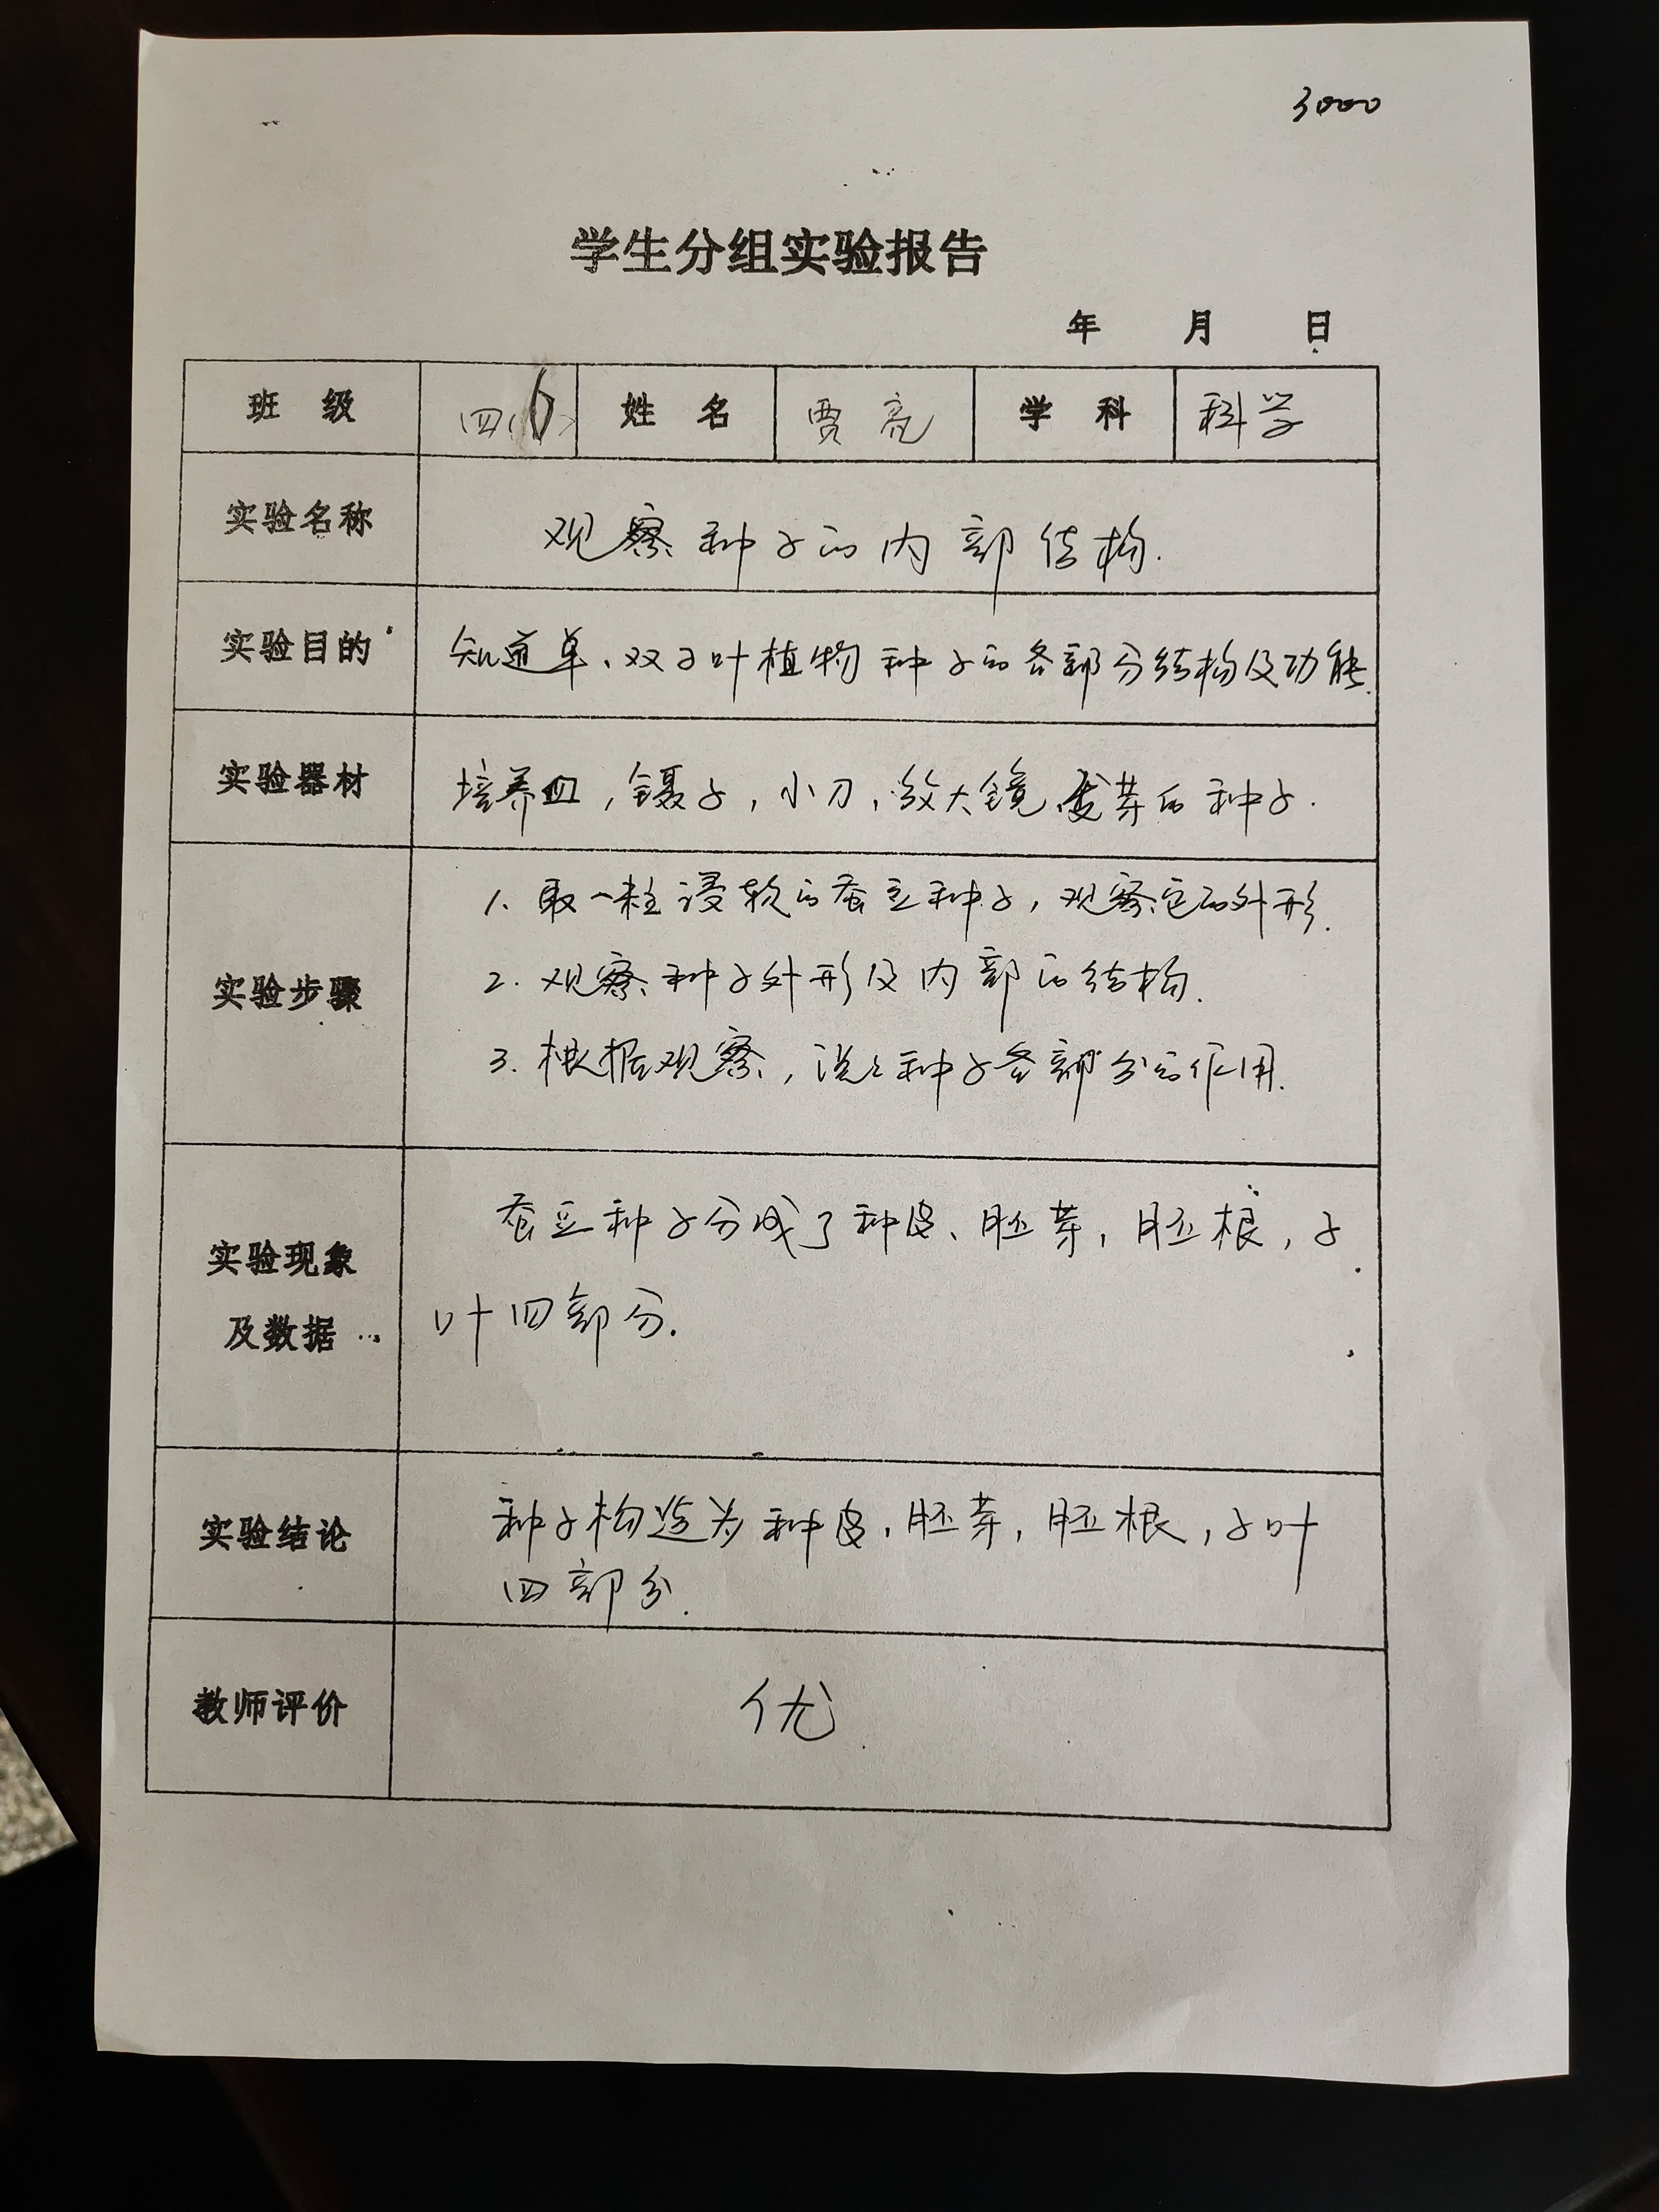 3000
学生分组实验报告
年 月 日
班 级 四(6) 姓 名 贾亮 学 科 科学
实验名称 观察种子的内部结构.
实验目的 知道单、双子叶植物种子的各部分结构及功能.
实验器材 培养皿,镊子,小刀,放大镜,发芽的种子.
实验步骤
1. 取一粒浸软的蚕豆种子,观察它的外形.
2. 观察种子外形及内部的结构.
3. 根据观察,说说种子各部分的作用.
实验现象
及数据
蚕豆种子分成了种皮、胚芽,胚根,子
叶四部分.
实验结论
种子构造为种皮,胚芽,胚根,子叶
四部分.
教师评价 优